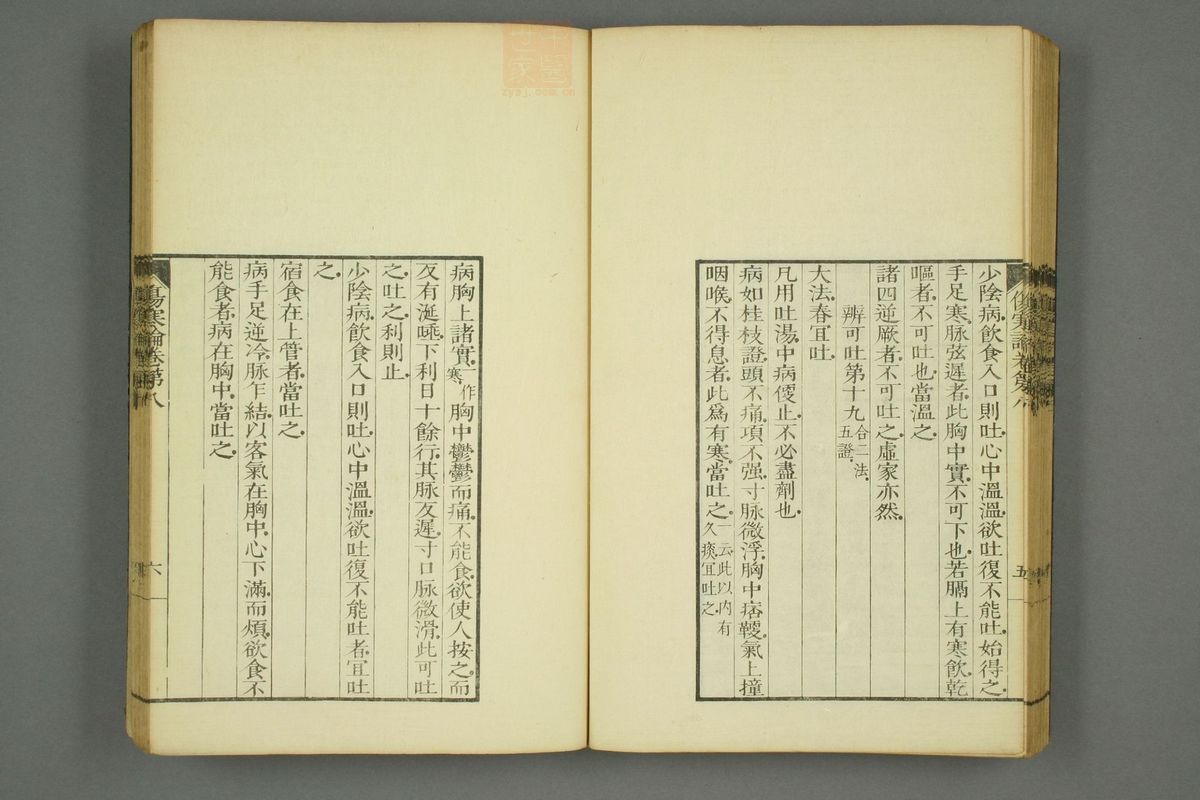 少陰病。飲食入口則吐。心中溫溫。欲吐復不能吐。始得之。
手足寒。脉弦遲者。此胸中實。不可下也。若膈上有寒飲。乾
嘔者。不可吐也。當溫之。
諸四逆厥者。不可吐之。虛家亦然。
辨可吐第十九 合二法。五證。
大法。春宜吐。
凡用吐湯。中病便止。不必盡劑也。
病如桂枝證。頭不痛。項不强。寸脉微浮。胸中痞鞕。氣上撞
咽喉。不得息者。此爲有寒。當吐之。一云此以內有久痰。宜吐之。
傷寒論卷第八
五
病胸上諸實。一作寒。胸中鬱鬱而痛。不能食。欲使人按之。而
反有涎唾。下利日十餘行。其脉反遲。寸口脉微滑。此可吐
之。吐之利則止。
少陰病。飲食入口則吐。心中溫溫。欲吐復不能吐者。宜吐
之。
宿食在上管者。當吐之。
病手足逆冷。脉乍結。以客氣在胸中。心下滿而煩。欲食不
能食者。病在胸中。當吐之。
傷寒論卷第八
六
zysj.com.cn